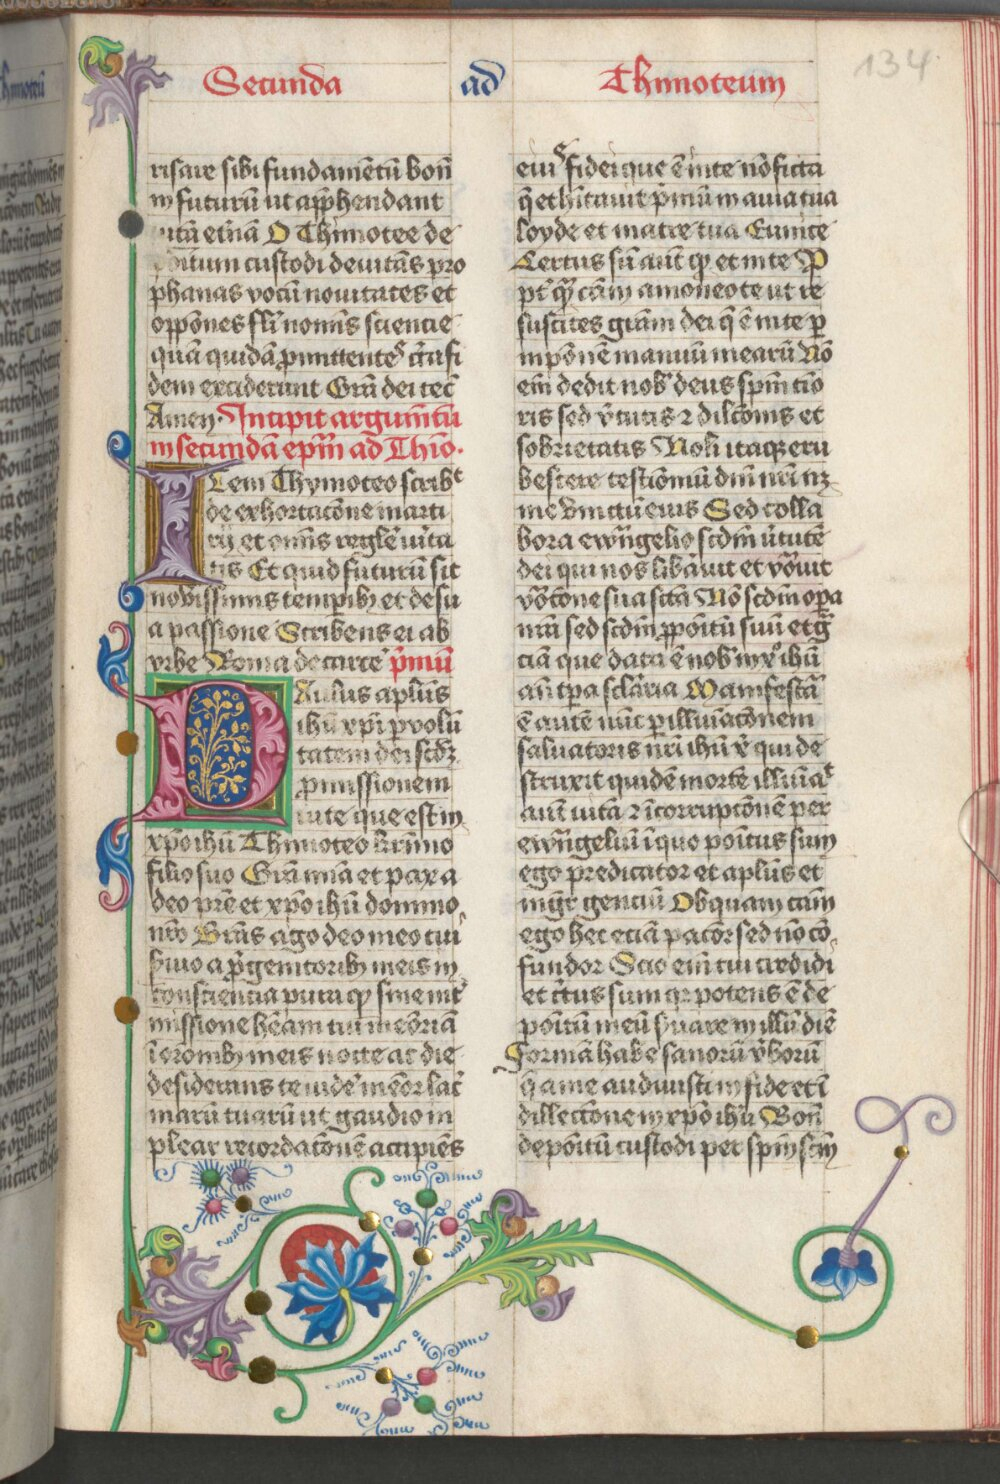 Secunda ad Thimoteum
134
risare sibi fundamētū bonū
in futurū ut app̄hendant
uitā et̄nā O Thimotee de
positum custodi deuitās pro
phanas vocū nouitates et
opp̄ones fl̄i nomīs sciencie
quā quidā promittentes c̄ca fi
dem exciderunt Grā dei tecū
Amen. Incipit argumētū
in secundā epm̄ ad Thio.
ITem Thymoteo scribit
de exhortacōne marti
rij et omīs regle uīta
tis Et quid futurū sit
nouissimis tempībꝫ et de su
a passione Scribens ei ab
vrbe Roma de carcē p̄mū
PAulus apl̄us
ihū xpī p uolū
tatem dei scd̄ꝫ
promissionem
uite que est in
xp̄o ihū Thimoteo k̄rimo
filio suo Grā mīa et pax a
deo pr̄e et xp̄o ihū domino
nrō Grās ago deo meo cui
ẜuio a p̄genitoribꝫ meis in
consciencia pura qꝫ sine int̄
missione hēam tui meōriā
ī orōnibꝫ meis nocte ac die
desiderans te uidē meōr lac̄
marū tuarū ut gaudio im
plear recordacōnē accipiēs
eius fidei que ē in te nō ficta
q̄ et hītauit p̄mū in auia tua
loyde et matre tua Eunice
Certus sū aut̄ qꝫ et in te P
pt̄ q̄ cām amoneo te ut re
suscites grām dei q̄ ē in te p
inpōnē manuū mearū Nō
em̄ dedit nob̄ deus spm̄ tīo
ris sed v̄tutis ⁊ dilcōnis et
sobrietatis Noli itaqꝫ eru
bescere testīomū dn̄i nrī nꝫ
me vinctū eius Sed colla
bora ewāgelio scd̄m ūtutē
dei qui nos libāuit et vōuit
vōcōne sua sctā Nō scd̄m opa
nrā sed scd̄m ppōitū suū et grā
ciā que data ē nob̄ in xp̄o ihū
an̄ tpa sclāria Manifestā
ē autē nūc p illuīacōnem
saluatoris nrī ihū xp̄ qui de
struxit quidē mortē illuīat
aut̄ uitā ⁊ īcorrupcōnē per
ewāgeliū ī quo pōitus sum
ego predicator et apl̄us et
mgr̄ genciū Ob quam cām
ego hec eciā pacior sed nō cō
fundor Scio em̄ cui credidi
et c̄tus sum qr potens ē de
pōitū meū ẜuare in illū diē
Formā habe sanorū v̄borū
q̄ a me audiuisti in fide et ī
dillectōne in xp̄o ihū Bonū
depōitū custodi per spm̄ sctm̄